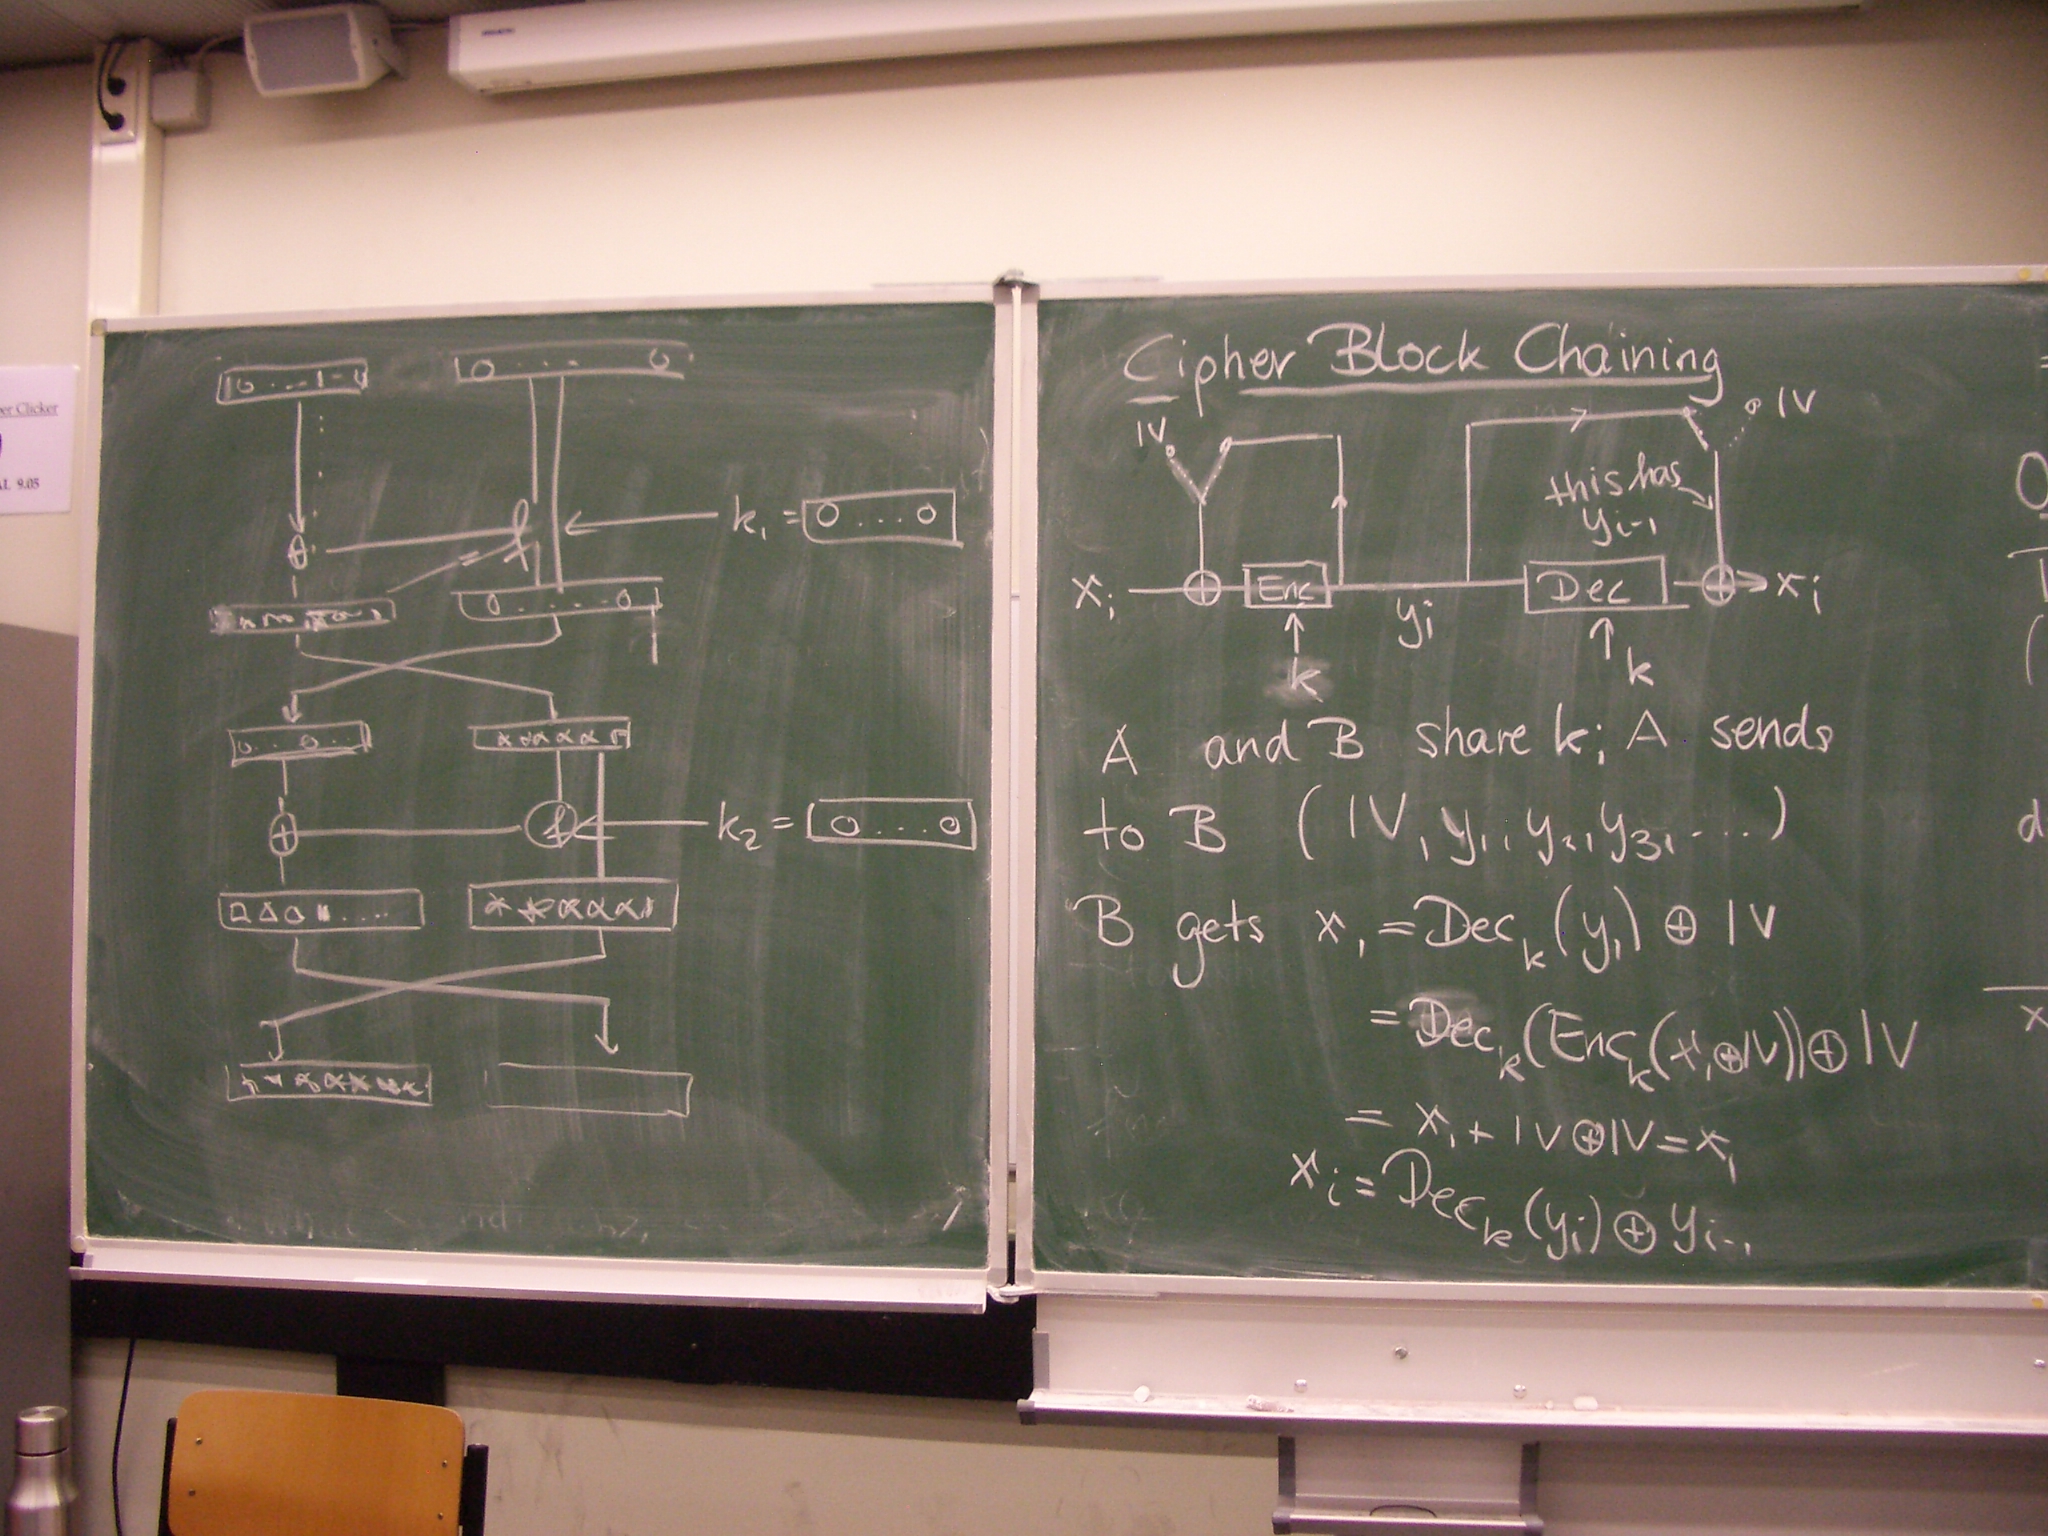 er Clicker
AL 9.05
0 . . . 0
k₁ = 0 . . . 0
0 . . . . 0
k₂ = 0 . . . 0
Cipher Block Chaining
IV
IV
this has
yᵢ₋₁
xᵢ ⊕ Enc yᵢ Dec ⊕ xᵢ
k
k
A and B share k; A sends
to B (IV, y₁, y₂, y₃, ...)
B gets x₁ = Decₖ(y₁) ⊕ IV
= Decₖ(Encₖ(x₁⊕IV))⊕IV
= x₁ + IV⊕IV = x₁
xᵢ = Decₖ(yᵢ) ⊕ yᵢ₋₁